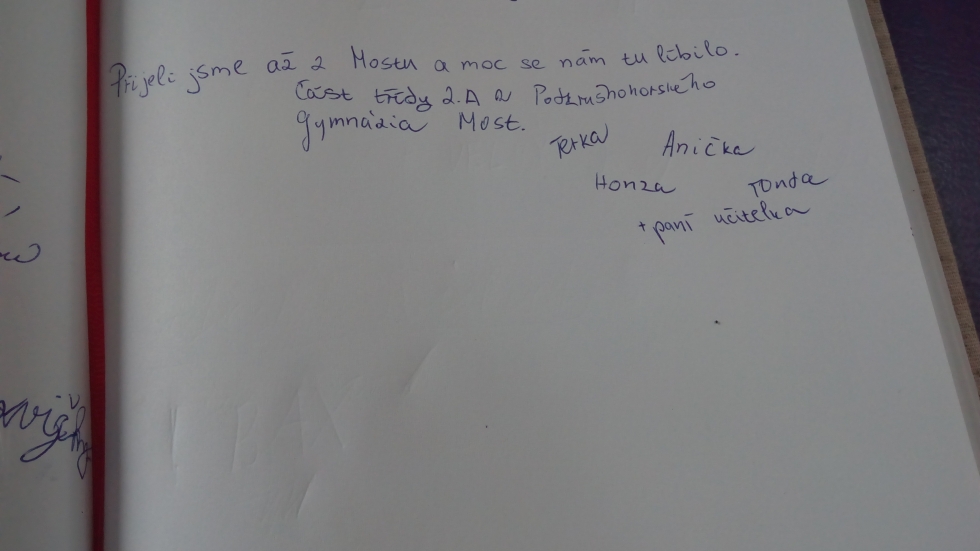 Přijeli jsme až z Mostu a moc se nám tu líbilo.
Část třídy 2.A z Podkrušnohorského
gymnázia Most.
Terka Anička
Honza Tonda
+ paní učitelka